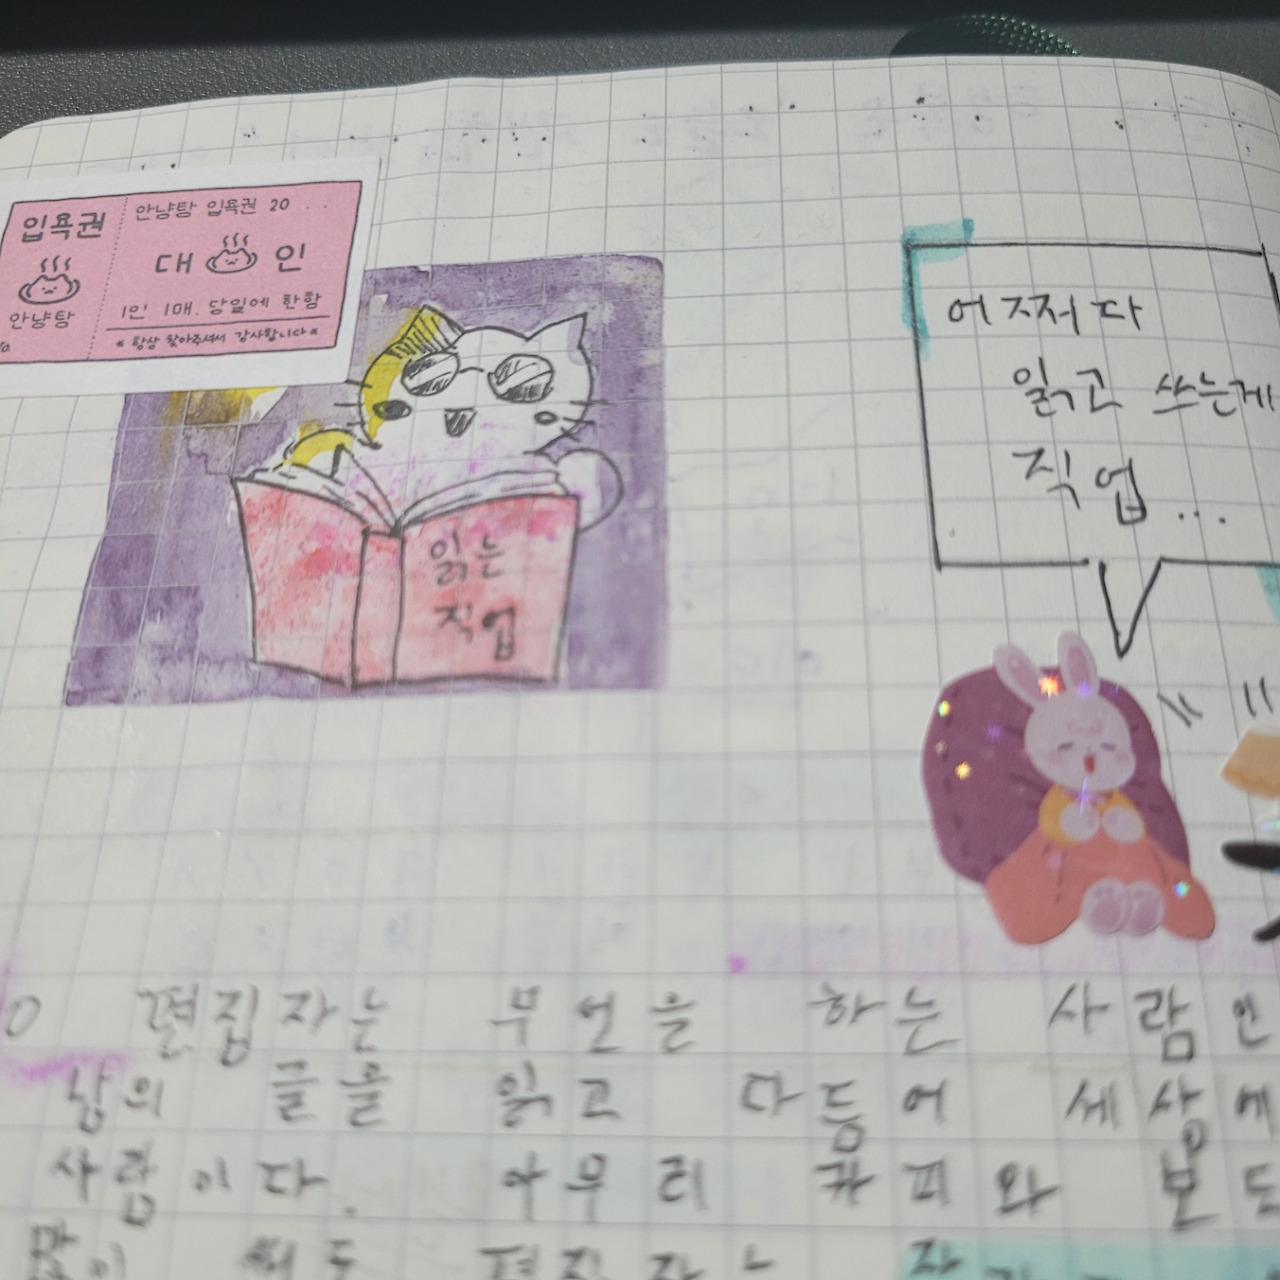 입욕권
안냥탕
안냥탕 입욕권 20
대 인
1인 1매. 당일에 한함
* 항상 찾아주셔서 감사합니다 *
읽는
직업
어쩌다
읽고 쓰는게
직업...
편집자는 무엇을 하는 사람인
남의 글을 읽고 다듬어 세상에
사람이다. 아무리 카피와 보도
많이 써도 편집자는